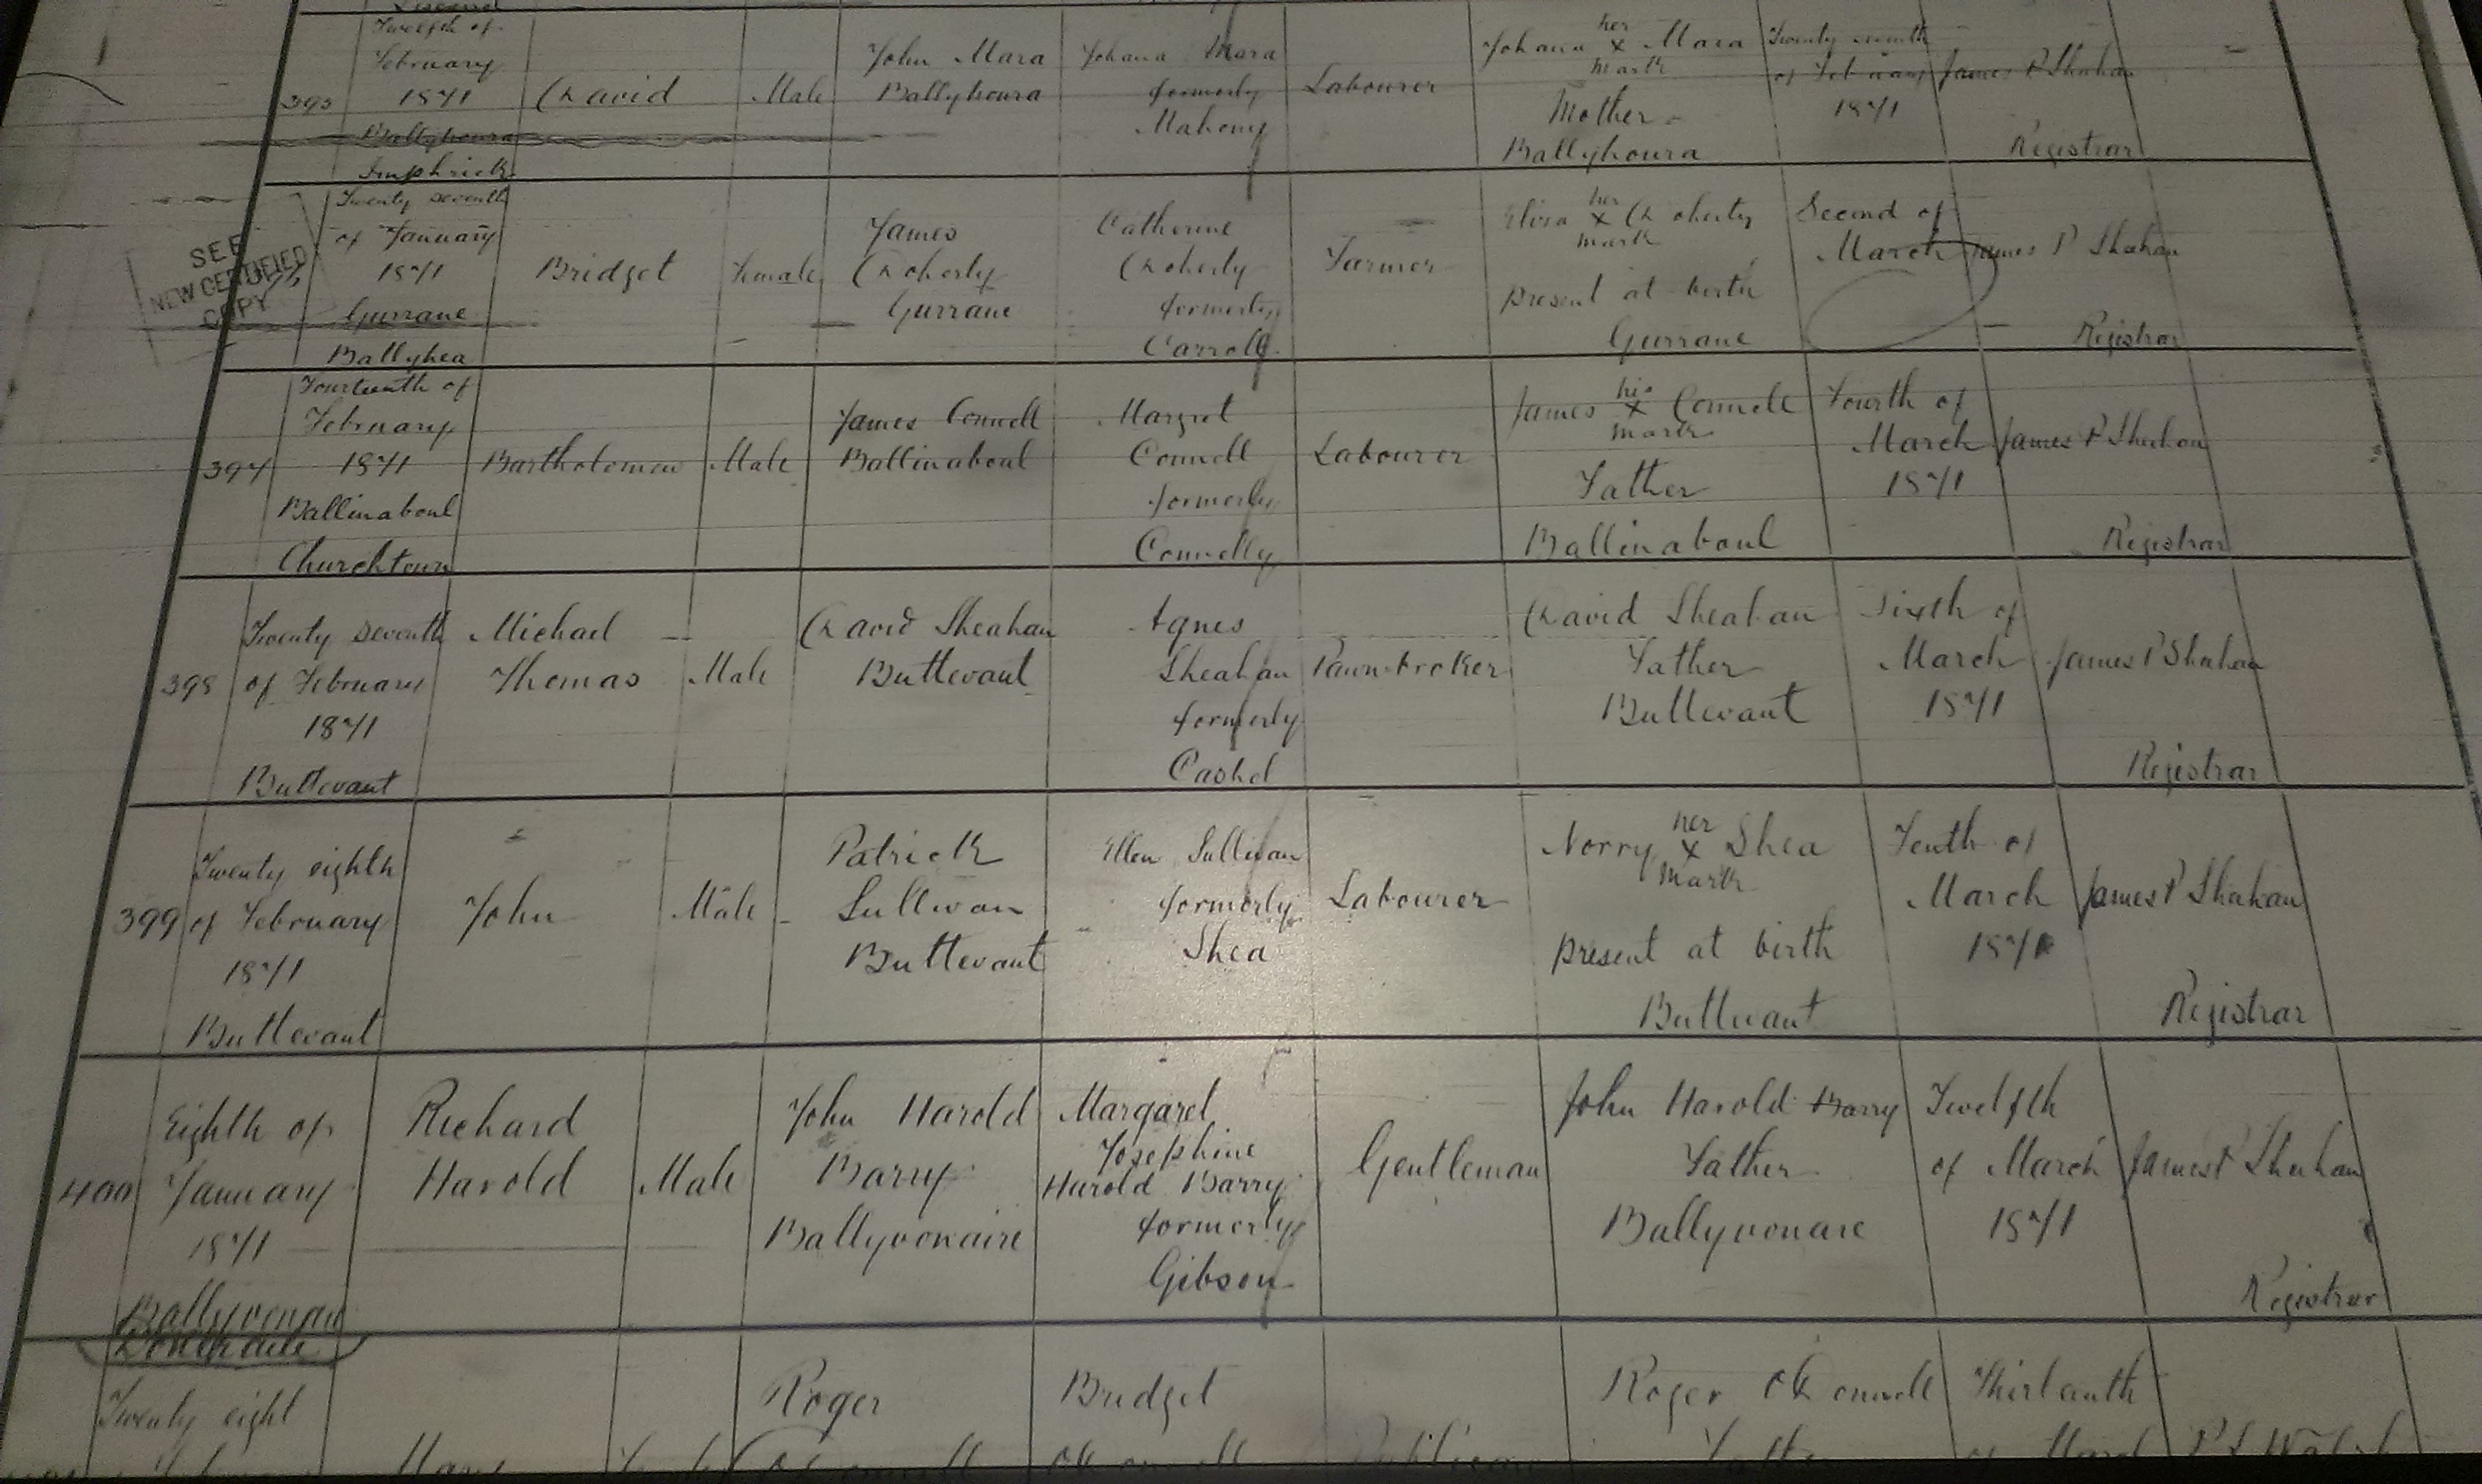 Twelfth of
February
1871
Ballyhoura
Imphrick
David
Male
John Mara
Ballyhoura
Johana Mara
formerly
Mahony
Labourer
Johana her x mark Mara
Mother
Ballyhoura
Twenty seventh
of February
1871
James P Sheehan
Registrar
SEE
NEW CERTIFIED
COPY
Twenty seventh
of January
1871
Gurrane
Ballyhea
Bridget
Female
James
Doherty
Gurrane
Catherine
Doherty
formerly
Carroll
Farmer
Eliza her x mark Doherty
present at birth
Gurrane
Second of
March
James P Sheahan
Registrar
397
Fourteenth of
February
1871
Ballinaboul
Churchtown
Bartholomew
Male
James Connell
Ballinaboul
Margret
Connell
formerly
Connelly
Labourer
James his x mark Connell
Father
Ballinaboul
Fourth of
March
1871
James P Sheehan
Registrar
398
Twenty seventh
of February
1871
Buttevant
Michael
Thomas
Male
David Sheahan
Buttevant
Agnes
Sheahan
formerly
Cashel
Pawnbroker
David Sheahan
Father
Buttevant
Sixth of
March
1871
James P Sheehan
Registrar
399
Twenty eighth
of February
1871
Buttevant
John
Male
Patrick
Sullivan
Buttevant
Ellen Sullivan
formerly
Shea
Labourer
Norry her x mark Shea
present at birth
Buttevant
Tenth of
March
1871
James P Sheahan
Registrar
400
Eighth of
January
1871
Ballyvonare
Doneraile
Richard
Harold
Male
John Harold
Barry
Ballyvonaire
Margaret
Josephine
Harold Barry
formerly
Gibson
Gentleman
John Harold Barry
Father
Ballyvonare
Twelfth
of March
1871
James P Sheehan
Registrar
Twenty eight
Mary
Roger
O'Connell
Bridget
O'Connell
Publican
Roger O'Connell
Father
Thirteenth
of March